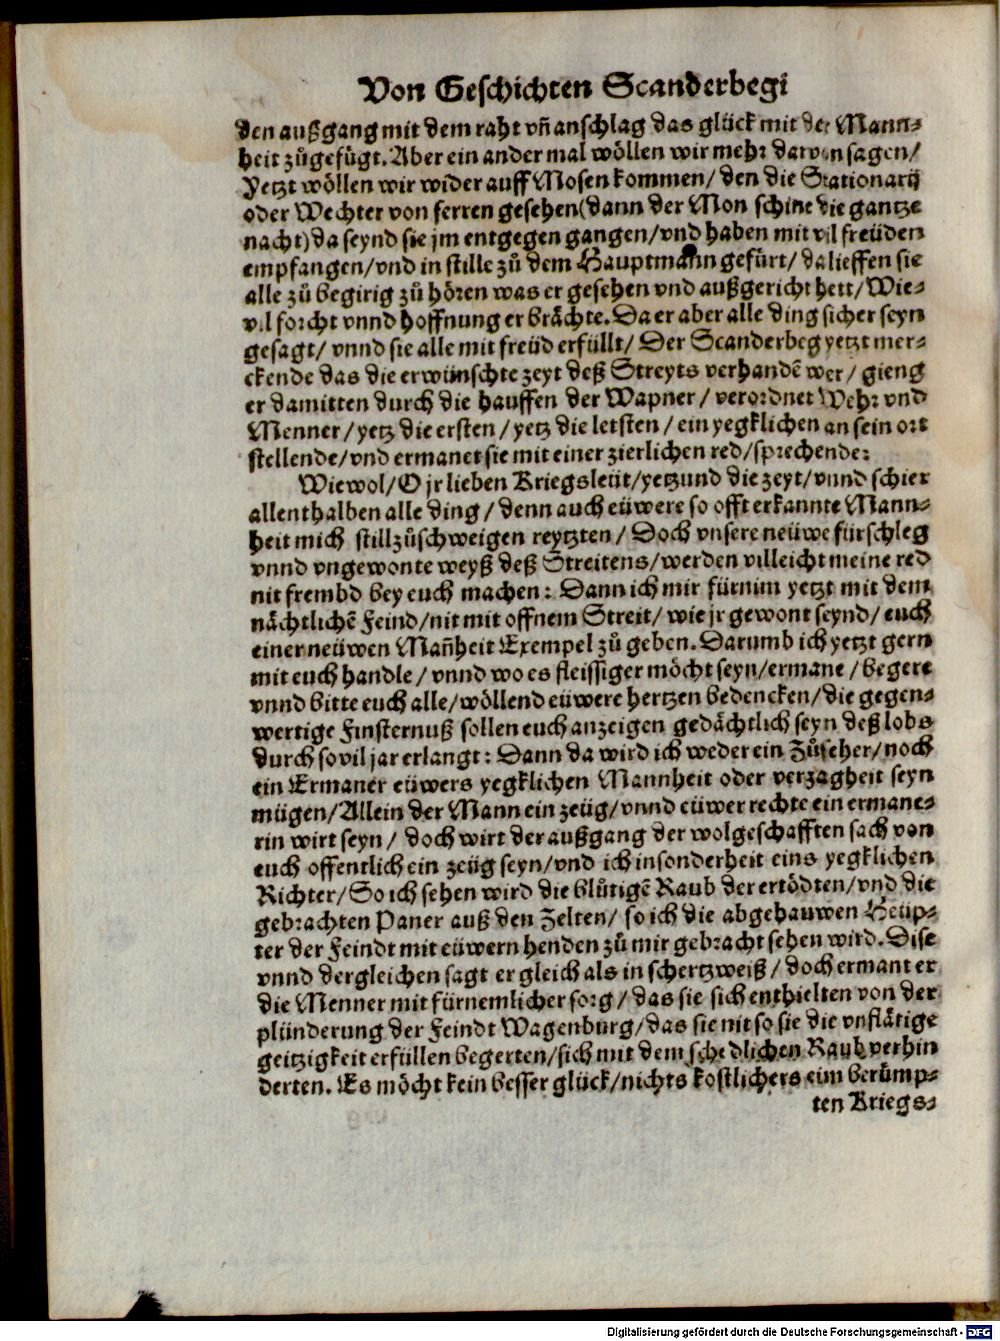 Von Geschichten Scanderbegi
den außgang mit dem raht vñ anschlag das glück mit der Mann⸗
heit zůgefügt. Aber ein ander mal wöllen wir mehr darvon sagen/
Yetzt wöllen wir wider auff Mosen kommen/ den die Stationarij
oder Wechter von ferren gesehen(dann der Mon schine die gantze
nacht)da seynd sie jm entgegen gangen/vnd haben mit vil freüden
empfangen/vnd in stille zů dem Hauptmann gefürt/ da lieffen sie
alle zů begirig zů hören was er gesehen vnd außgericht hett/ Wie⸗
vil forcht vnnd hoffnung er brächte. Da er aber alle ding sicher seyn
gesagt/ vnnd sie alle mit freüd erfüllt/ Der Scanderbeg yetzt mer⸗
ckende das die erwünschte zeyt deß Streyts verhandē wer/ gieng
er damitten durch die hauffen der Wapner/ verordnet Wehr vnd
Menner/ yetz die ersten/ yetz die letsten/ ein yegklichen an sein ort
stellende/vnd ermanet sie mit einer zierlichen red/sprechende:
Wiewol/O jr lieben Kriegsleüt/yetzund die zeyt/vnnd schier
allenthalben alle ding/ denn auch eüwere so offt erkannte Mann⸗
heit mich stillzůschweigen reytzten/ Doch vnsere neüwe fürschleg
vnnd vngewonte weyß deß Streitens/werden villeicht meine red
nit frembd bey euch machen: Dann ich mir fürnim yetzt mit dem
nächtlichē Feind/nit mit offnem Streit/ wie jr gewont seynd/ euch
einer neüwen Mañheit Exempel zů geben. Darumb ich yetzt gern
mit euch handle/ vnnd wo es fleissiger möcht seyn/ermane/ begere
vnnd bitte euch alle/wöllend eüwere hertzen bedencken/die gegen⸗
wertige Finsternuß sollen euch anzeigen gedächtlich seyn deß lobs
durch so vil jar erlangt: Dann da wird ich weder ein Zůseher/noch
ein Ermaner eüwers yegklichen Mannheit oder verzagheit seyn
mügen/Allein der Mann ein zeüg/vnnd eüwer rechte ein ermane⸗
rin wirt seyn/ doch wirt der außgang der wolgeschafften sach von
euch offentlich ein zeüg seyn/vnd ich insonderheit eins yegklichen
Richter/So ich sehen wird die blůtigē Raub der ertödten/vnd die
gebrachten Paner auß den Zelten/ so ich die abgehauwen Heüp⸗
ter der Feindt mit eüwern henden zů mir gebracht sehen wird. Dise
vnnd dergleichen sagt er gleich als in schertzweiß/ doch ermant er
die Menner mit fürnemlicher sorg/ das sie sich enthielten von der
plünderung der Feindt Wagenburg/das sie nit so sie die vnflätige
geitzigkeit erfüllen begerten/sich mit dem schedlichen Raub verhin
derten. Es möcht kein besser glück/nichts kostlichers eim berůmp⸗
ten Kriegs⸗
Digitalisierung gefördert durch die Deutsche Forschungsgemeinschaft - DFG